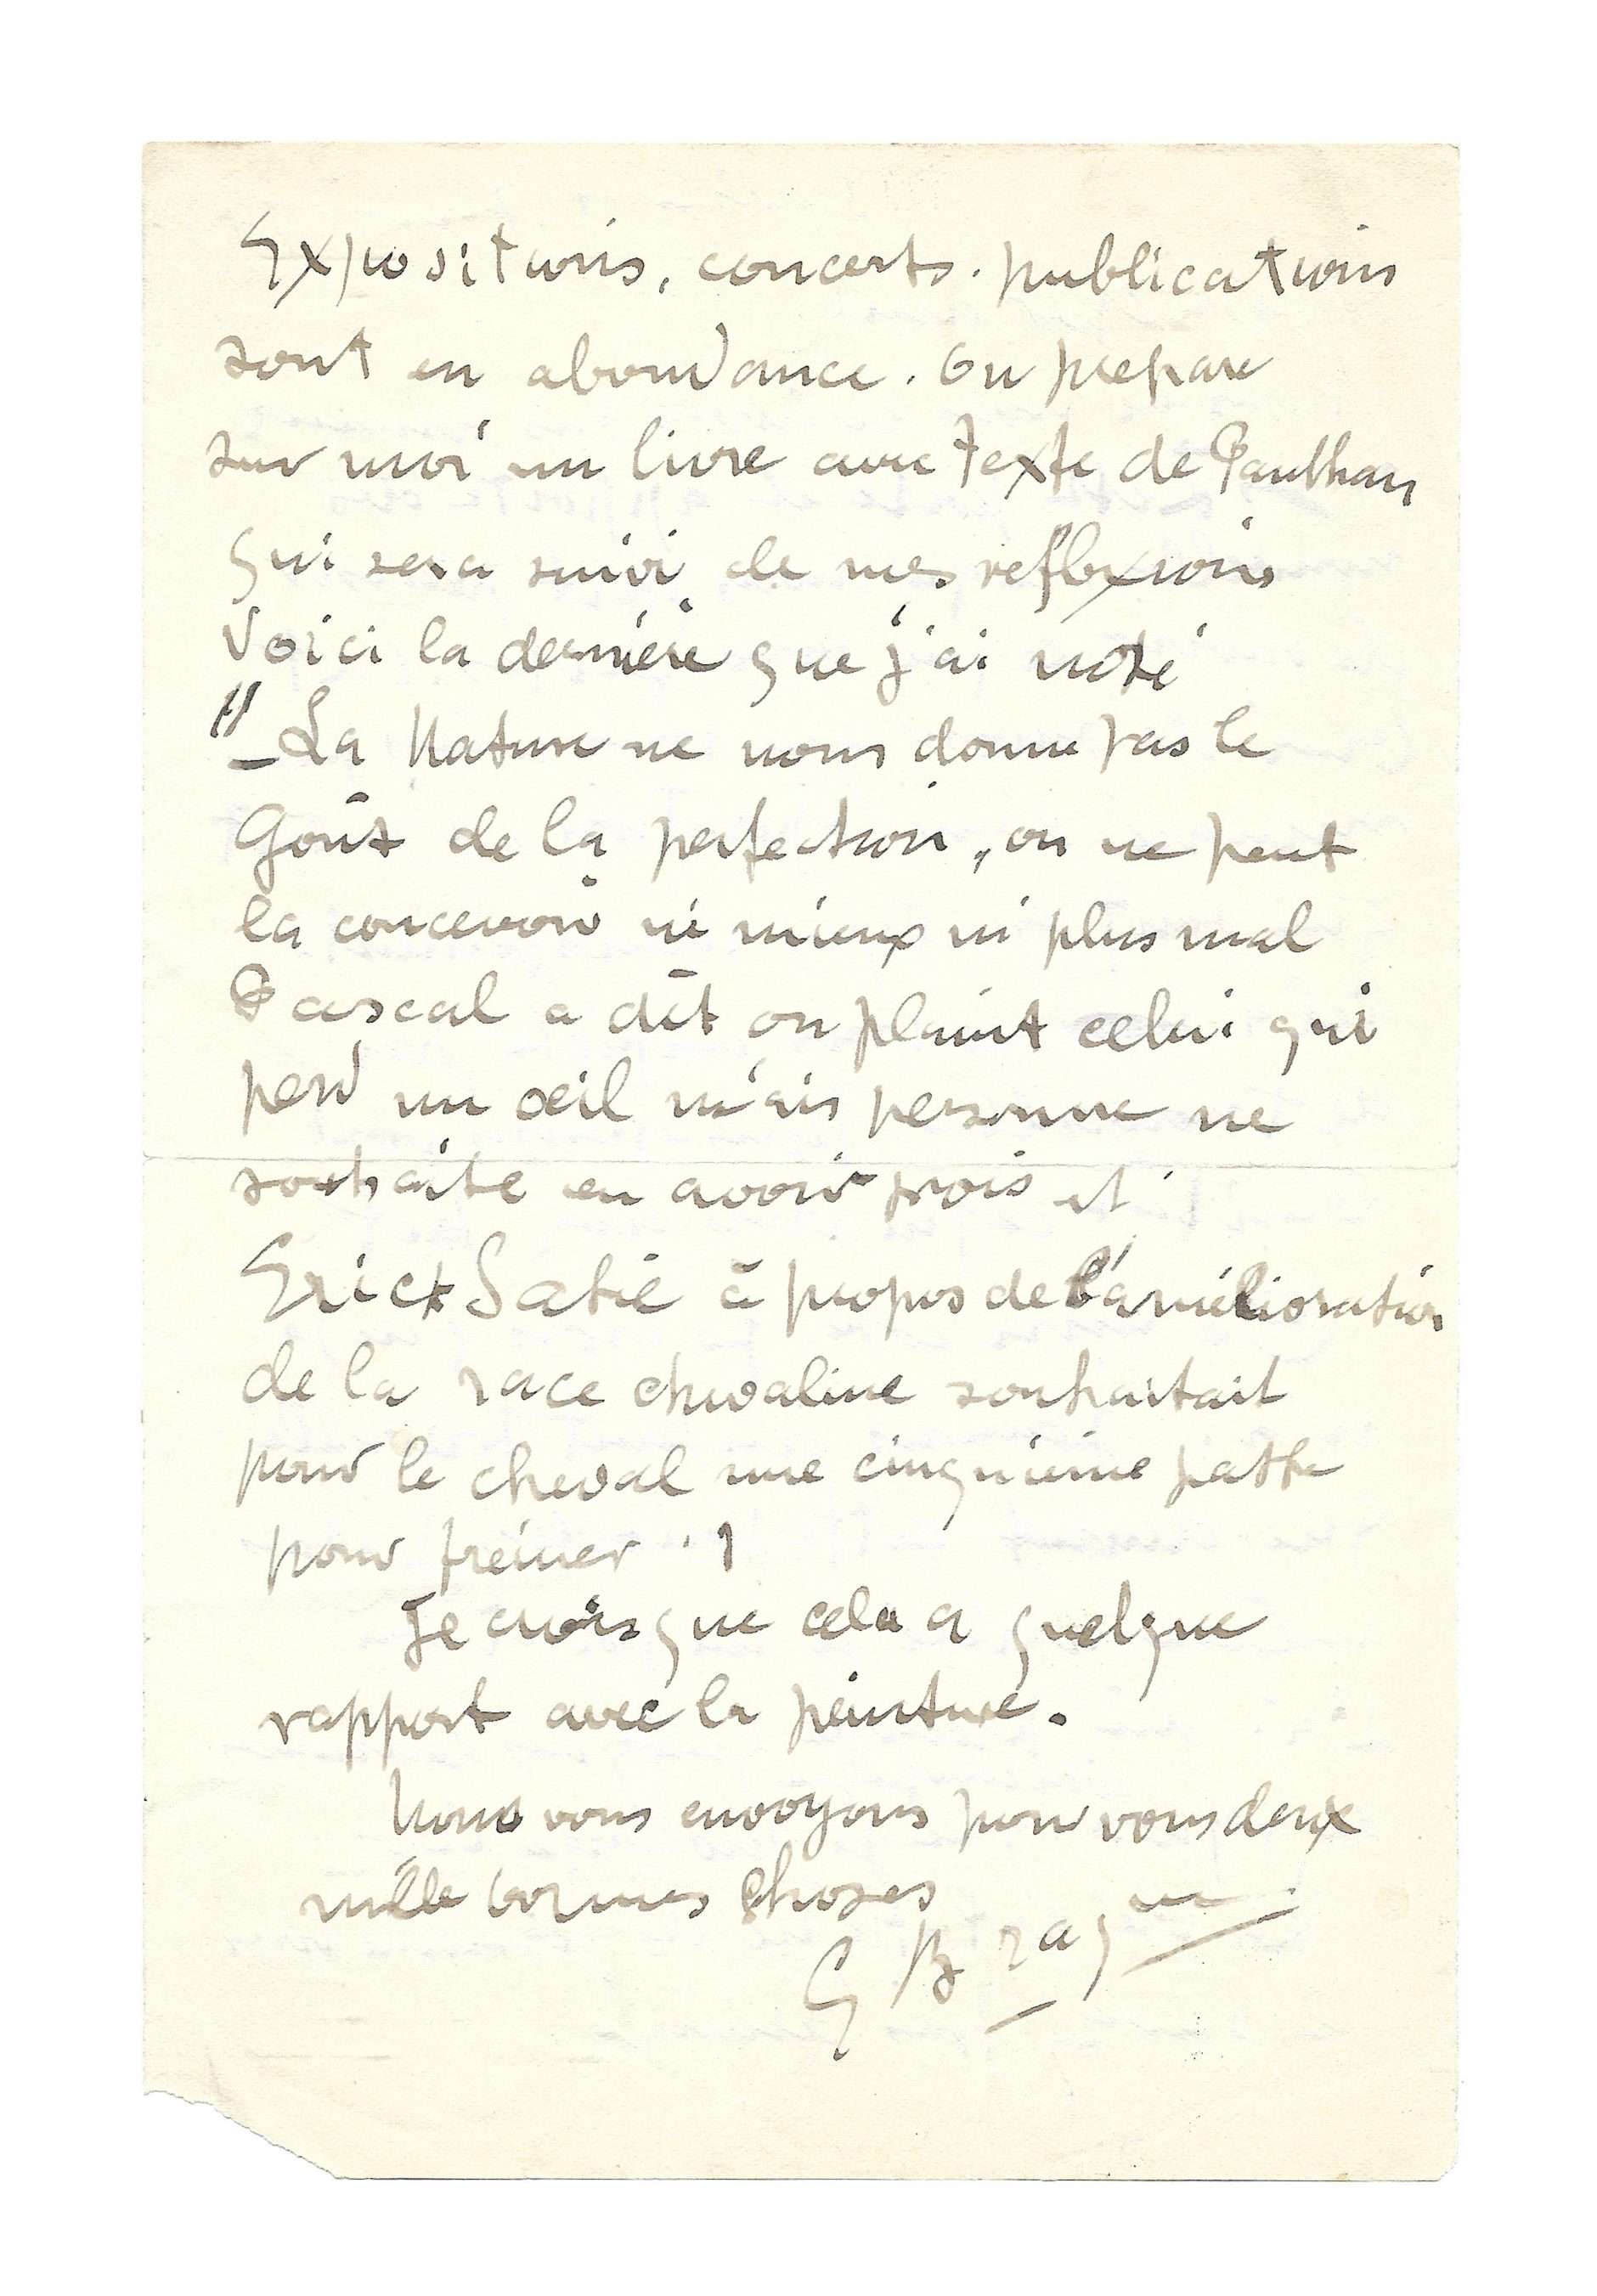 Expositions, concerts. publications
sont en abondance. On prepare
sur moi un livre avec texte de Paulhan
qui sera suivi de mes reflexions
Voici la dernière que j'ai noté
"_La Nature ne nous donne pas le
Goût de la perfection, on ne peut
la concevoir ni mieux ni plus mal
Pascal a dit on plaint celui qui
perd un œil mais personne ne
souhaite en avoir trois et
Erick Satie à propos de l'amélioration
de la race chevaline souhaitait
pour le cheval une cinquième patte
pour freiner !
Je crois que cela a quelque
rapport avec la peinture.
Nous vous envoyons pour vous deux
mille bonnes choses
G Braque